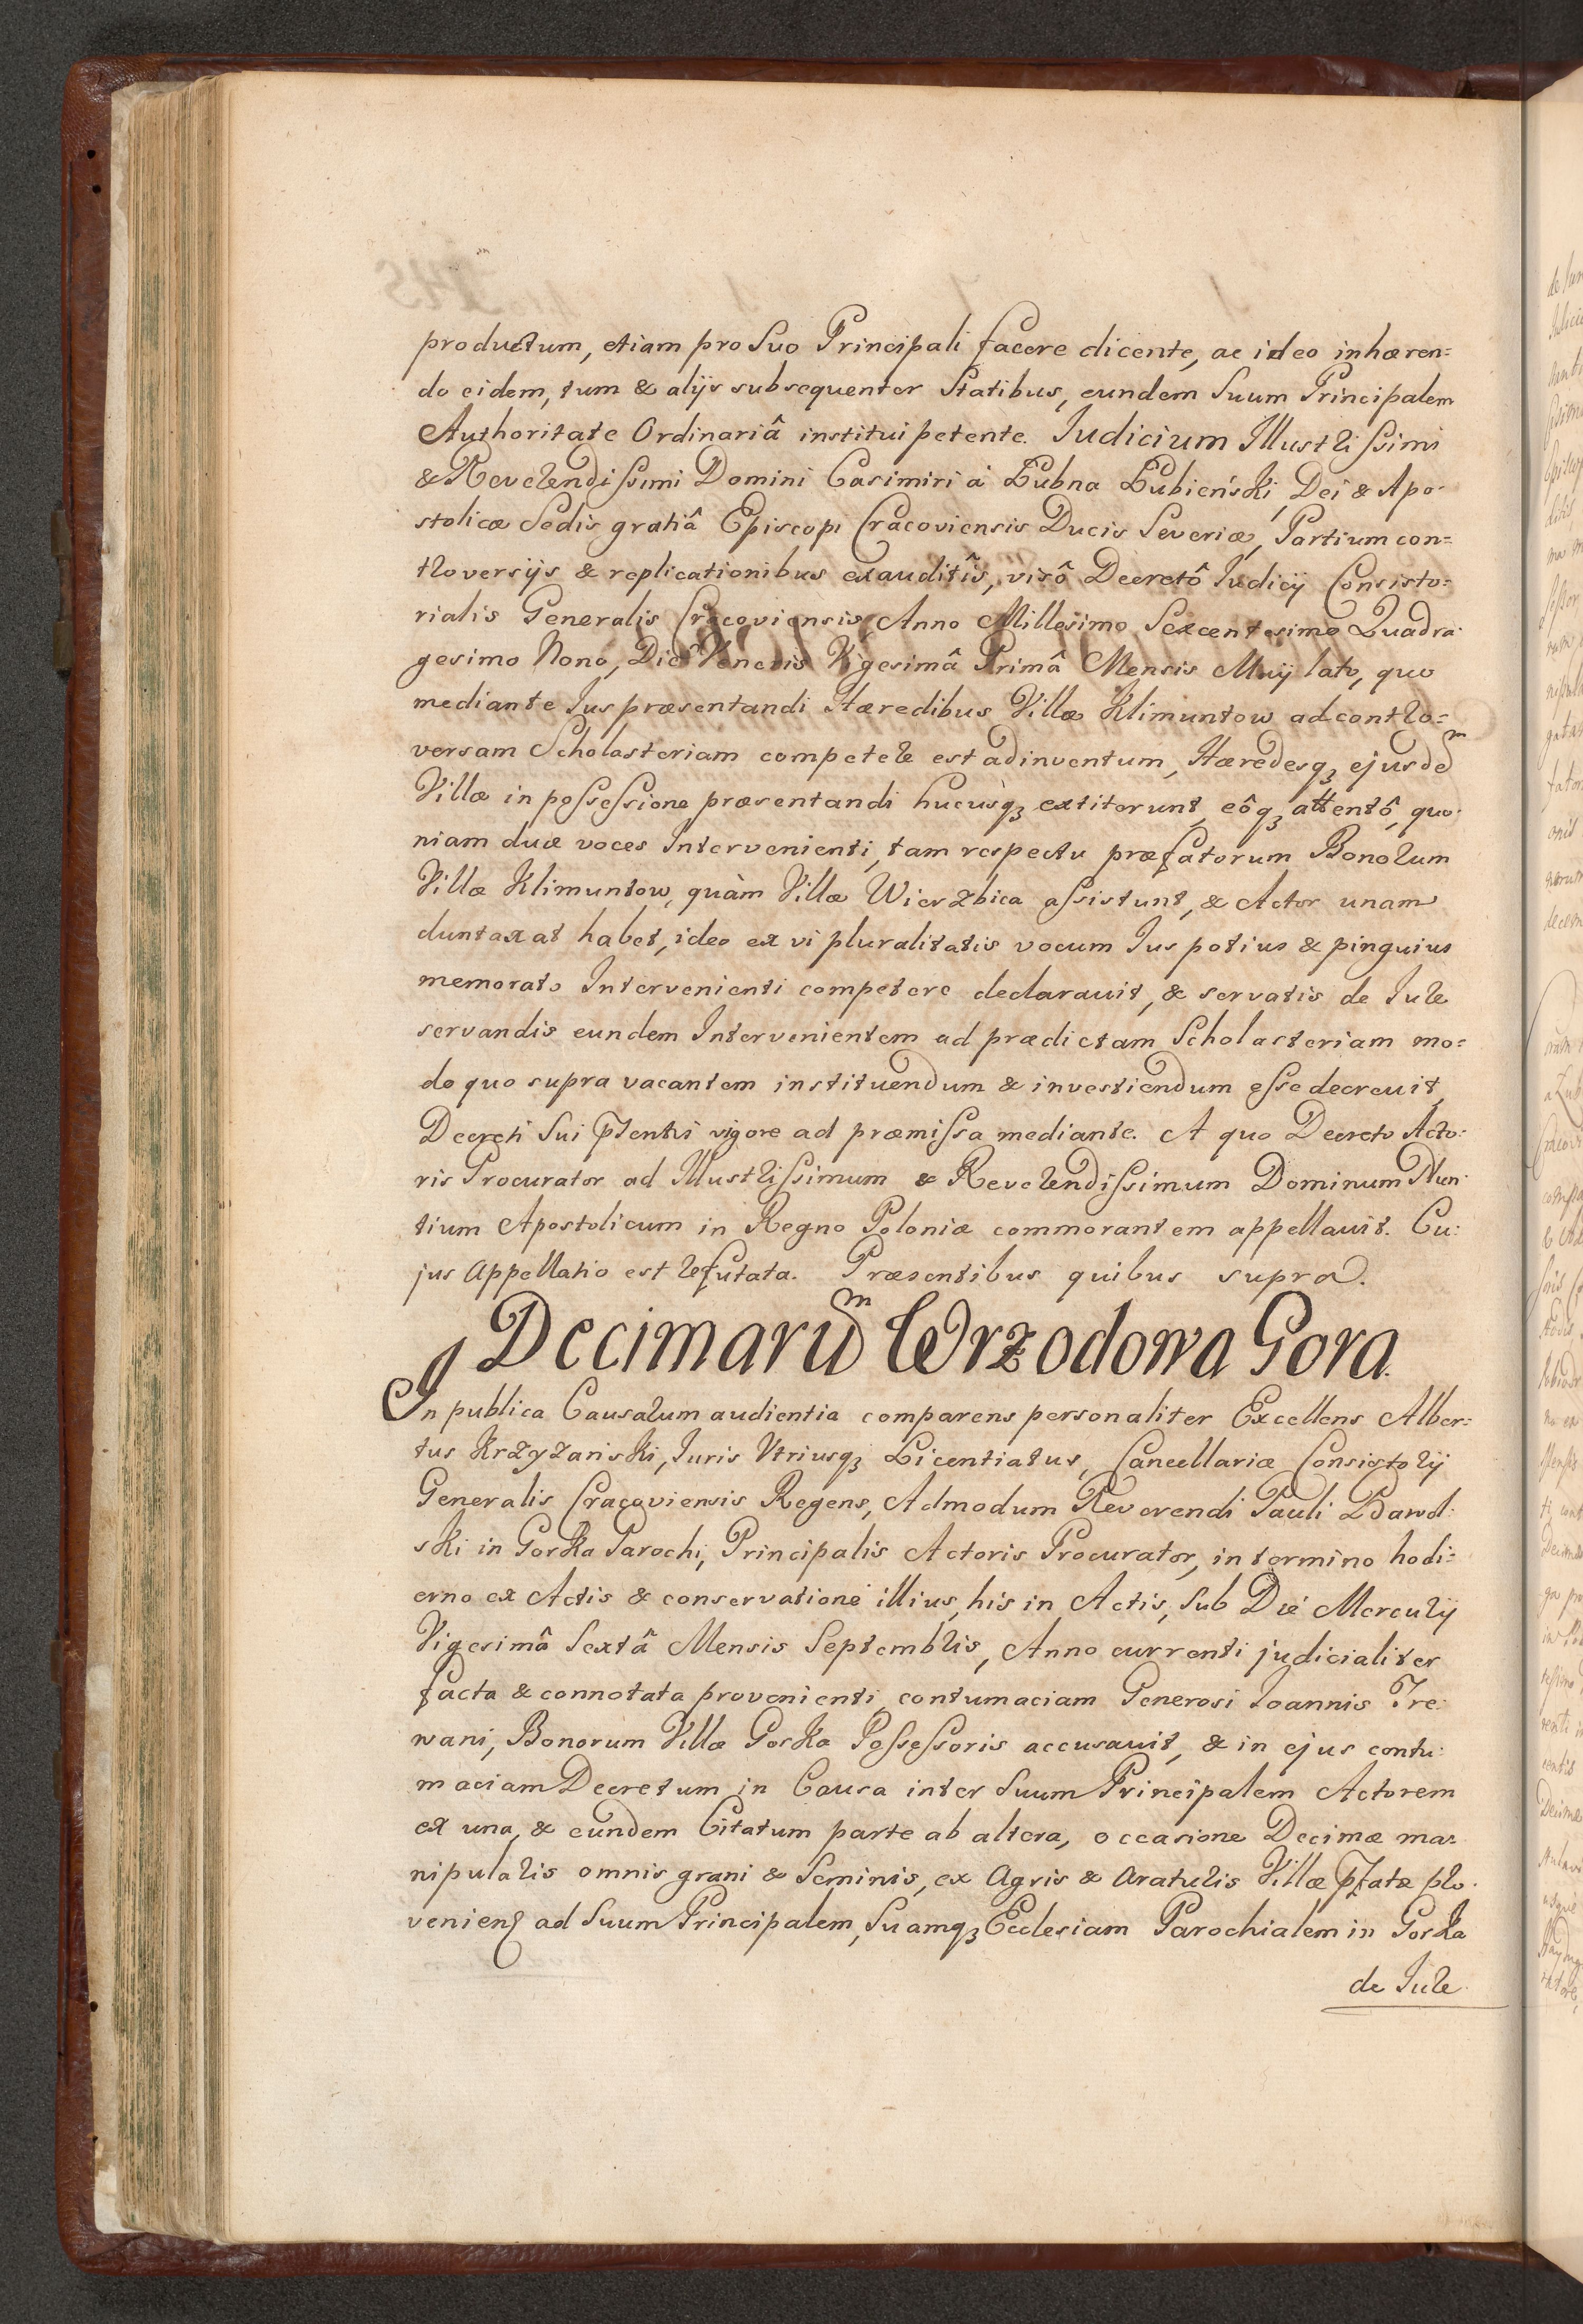 productum, etiam pro Suo Principali facere dicente, ac ideo inhæren=
do eidem, tum & alijs subsequenter Statibus, eundem Suum Principalem
Authoritate Ordinariâ institui petente. Iudicium Illustrissimi
& Reverendissimi Domini Casimiri à Łubna Łubieński, Dei & Apo=
stolicæ Sedis gratiâ Episcopi Cracoviensis Ducis Severiæ, Partium con=
troversijs & replicationibus exauditis, visô Decretô Iudicij Consisto=
rialis Generalis Cracoviensis, Anno Millesimo Sexcentesimo Quadra
gesimo Nono, Die Veneris Vigesimâ Primâ Mensis Maij lato, quo
mediante Ius præsentandi Hæredibus Villæ Klimuntow ad contro=
versam Scholasteriam competere est adinventum, Hæredesqꝫ ejusdẽ
Villæ in possessione præsentandi hucusqꝫ extiterunt, eôqꝫ attentô, quo
niam duæ voces Intervenienti, tam respectu præfatorum Bonorum
Villæ Klimuntow, quàm Villæ Wierzbica assistunt, & Actor unam
duntaxat habet, ideo ex vi pluralitatis vocum Ius potius & pinguius
memorato Intervenienti competere declarauit, & servatis de Iure
servandis eundem Intervenientem ad prædictam Scholasteriam mo=
do quo supra vacantem instituendum & investiendum esse decreuit,
Decreti Sui pńtentis vigore ad præmissa mediante. A quo Decreto Acto=
ris Procurator ad Illustrissimum & Reverendissimum Dominum Nun
tium Apostolicum in Regno Poloniæ commorantem appellauit. Cu=
jus Appellatio est refutata. Præsentibus quibus supra.
Decimarũ Wrzodowa Gora.
In publica Causarum audientia comparens personaliter Excellens Alber=
tus Krzyzanski, Iuris Vtriusqꝫ Licentiatus, Cancellariæ Consistorij
Generalis Cracoviensis Regens, Admodum Reverendi Pauli Zdawol
ski in Gorka Parochi, Principalis Actoris Procurator, in termino hodi=
erno ex Actis & conservatione illius, his in Actis, Sub Die Mercurij
Vigesimâ Sextâ Mensis Septembris, Anno currenti judicialiter
facta & connotata provenienti, contumaciam Generosi Ioannis Tre
wani, Bonorum Villæ Gorka Possessoris accusauit, & in ejus contu
maciam Decretum in Causa inter Suum Principalem Actorem
ex una, & eundem Citatum parte ab altera, occasione Decimæ ma=
nipularis omnis grani & Seminis, ex Agris & Araturis Villæ pfatæ pro
venien͛ ad Suum Principalem, Suamqꝫ Ecclesiam Parochialem in Gorka
de Iure